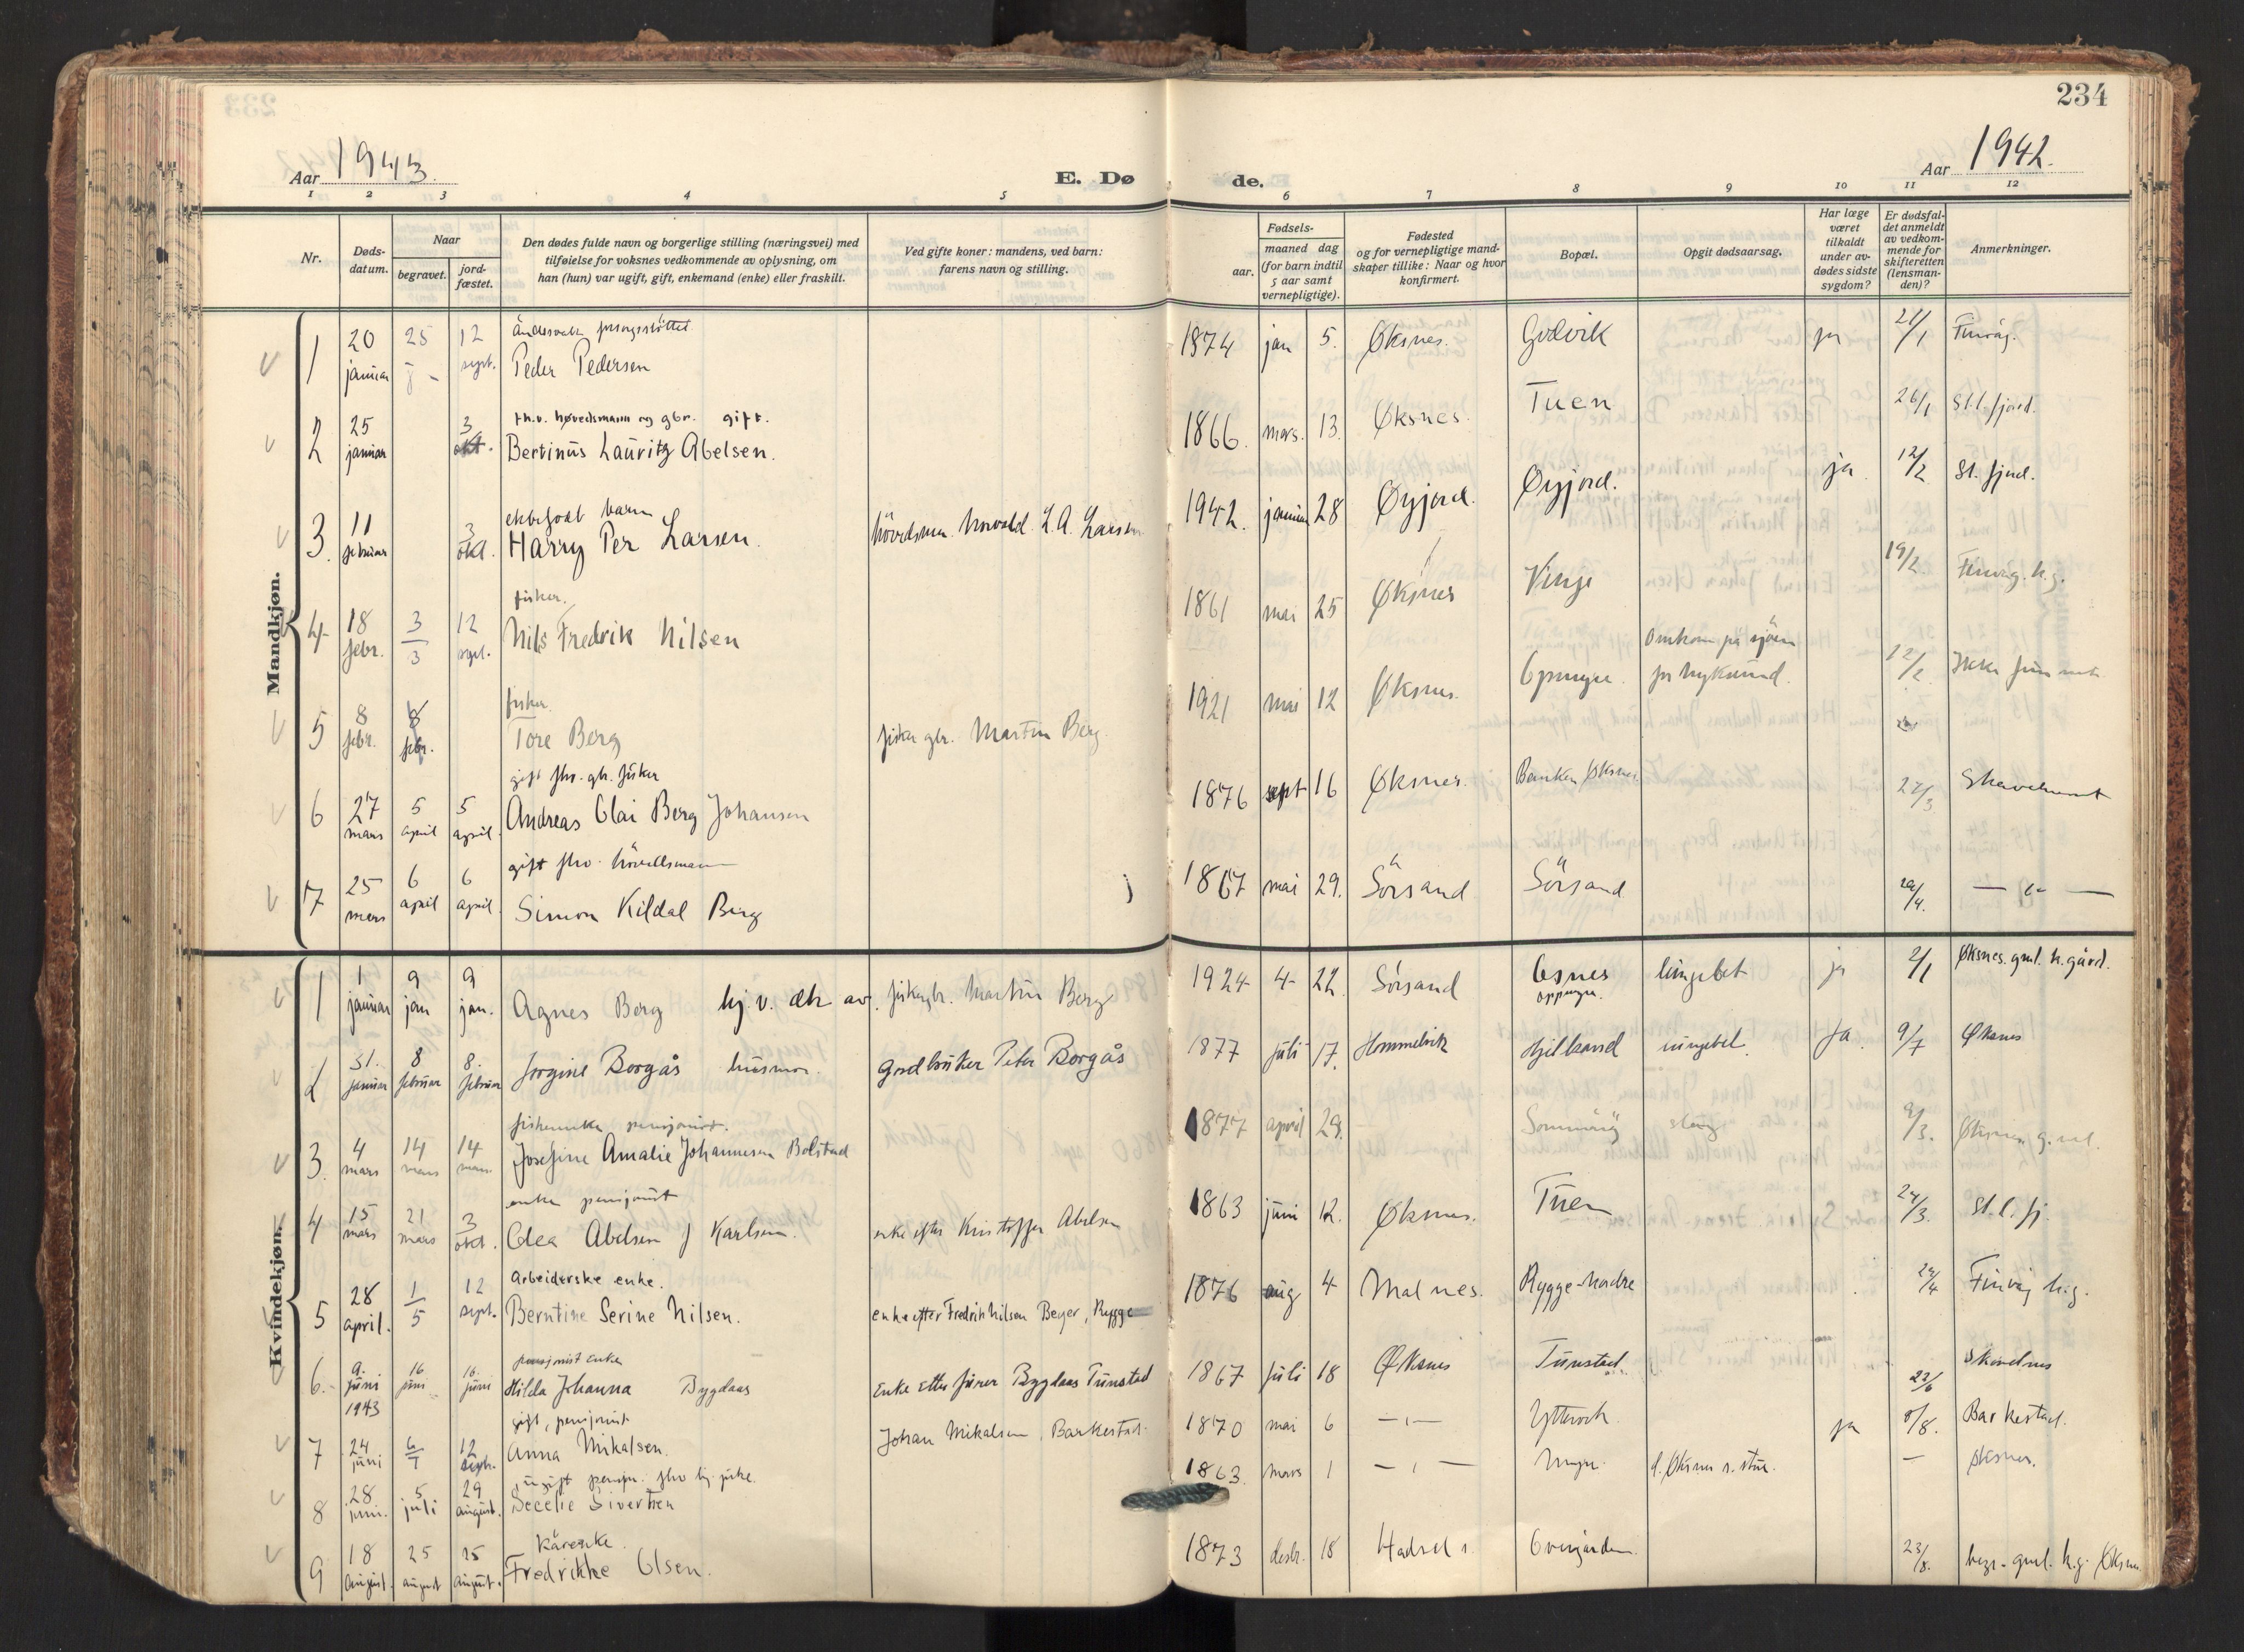 234
Aar 1943.
E. Døde.
Aar 1942.
1 2 3 4 5 6 7 8 9 10 11 12
Nr.
Døds-
datum.
Naar
begravet.
jord-
fæstet.
Den dødes fulde navn og borgerlige stilling (næringsvei) med
tilføielse for voksnes vedkommende av oplysning, om
han (hun) var ugift, gift, enkemand (enke) eller fraskilt.
Ved gifte koner: mandens, ved barn:
farens navn og stilling.
Fødsels-
aar.
maaned dag
(for barn indtil
5 aar samt
vernepligtige).
Fødested
og for vernepligtige mand-
skaper tillike: Naar og hvor
konfirmert.
Bopæl.
Opgit dødsaarsag.
Har læge
været
tilkaldt
under av-
dødes sidste
sygdom?
Er dødsfal-
det anmeldt
av vedkom-
mende for
skifteretten
(lensman-
den)?
Anmerkninger.
Mandkjøn.
1 20 januar 25 12 sept.
Peder Pedersen
1874 jan 5. Øksnes. Godvik ja 21/1 Finvåg.
fh.v. høvedsmann og gbr. gift.
2 25 januar 3 okt. Bertinus Lauritz Abelsen.
1866. mars. 13. Øksnes. Tuen 26/1 St.l.fjord.
ektefødt barn
3. 11 februar 3 okt. Harry Per Larsen. L.A. Larsen
1942. januar 28 Øyjord. Øyjord. ja 12/2 St. fjord.
fisker.
4 18 febr. 3/3 12 sept. Nils Fredrik Nilsen
1861 mai 25 Øksnes Vinje 19/2. Finvåg. k.g.
fisker.
5 8 febr. 8 febr. Tore Berg fisker gbr. Martin Berg.
1921 mai 12 Øksnes. Omkom på sjøen
pr Nyksund. 12/2 Ikke funnet
gift fhv. gb. fisker
6 27 mars 5 april 5 april. Andreas Olai Berg Johansen
1876 sept 16 Øksnes. Banken Øksnes. 27/3
gift fhv. høvedsmann
7 25 mars 6 april 6 april. Simon Kildal Berg
1867 mai 29. Sörsand Sörsand 20/4. — " —
Kvindekjøn.
1 1 januar 9 jan 9 jan. Agnes Berg hj.v. dtr av. fisker gbr. Martin Berg
1924 4 22. Sörsand ja 2/1 Øksnes. gml. k.gård.
2 31. januar 8 februar 8. februar Jorgine Borgås husmor. gårdbruker Peter Borgås
1877 juli 17. Hommelvik Ja. 9/7 Øksnes
pensjonist.
3. 4 mars 14 mars 14 mars Josefine Amalie Johannesen Bolstad
1877 april 29. 9/3. Øksnes g.ml.
enke pensjonist
4 15 mars 21 mars 3 okt. Olea Abelsen f Karlsen. enke efter Kristoffer Abelsen
1863 juni 12. Øksnes. Tuen 24/3. St.l.fj.
Arbeiderske enke.
5 28 april. 1/5 12 sept. Berntine Serine Nilsen. enke efter Fredrik Nilsen Beyer, Rygge
1876 aug 4 Malnes. Rygge-Nordre 24/4 Finvåg k.g.
pensjonist enke
6. 9. juni 1943 16 juni 16. juni Hilda Johanna Bygdaas Enke etter fører Bygdaas Tunstad
1867 juli 18 Øksnes Tunstad 22/6 Skindnes
gift, pensjonist
7 24 juni 12 sept. Anna Mikalsen. Johan Mikalsen, Barkestad.
1870 mai 6 — " — ja 5/8. Barkestad.
ugift
8 28. juni. 5 juli 29 august. Sivertsen
1863. mars 1 — " — — Øksnes.
kårenke.
9 18 august. 25 august 25 august. Fredrikke Olsen.
1873 desbr. 18 Hadsel s. Overgården. 23/8. begr. gml. k.g. Øksnes